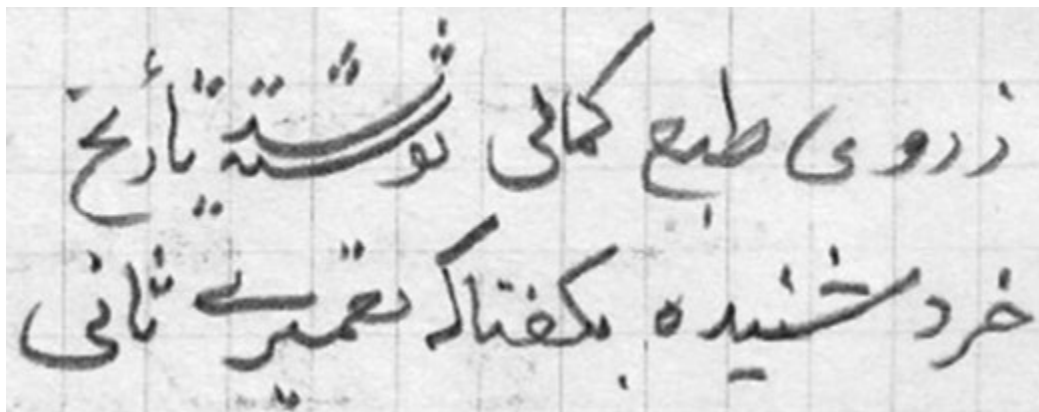 ز روی طبع کمالی نوشته تأریخ
خرد شنیده بگفتا که تعمیر ثانی